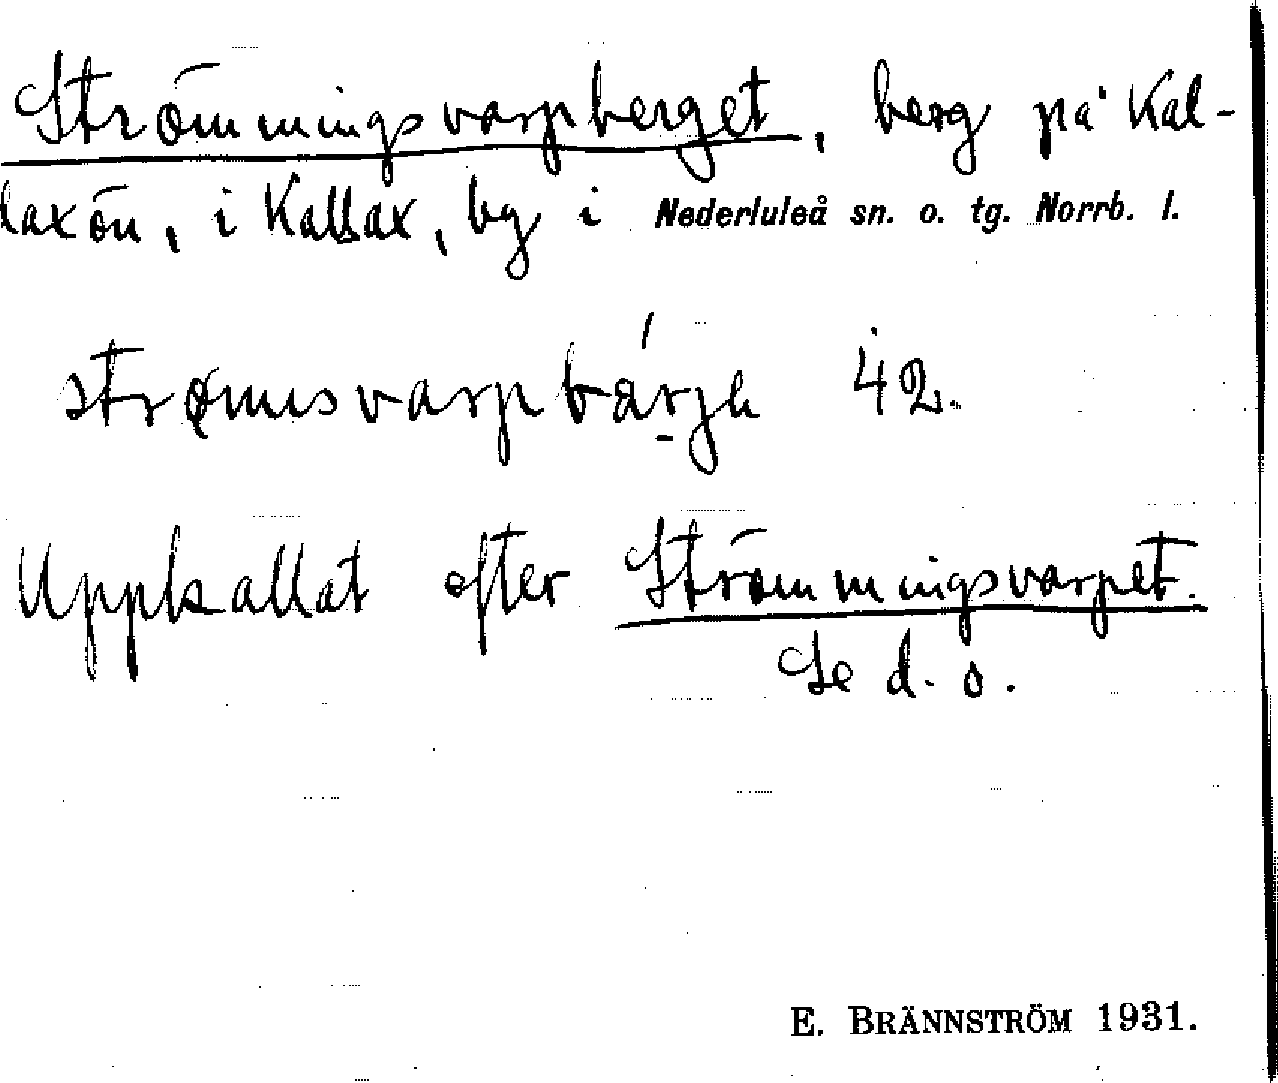 Strömmingsvarpberget, berg på Kal-
laxön, i Kallax, by i Nederluleå sn. o. tg. Norrb. l.
42.
Uppkallat efter Strömmingsvarpet.
Se d. o.
E. BRÄNNSTRÖM 1931.